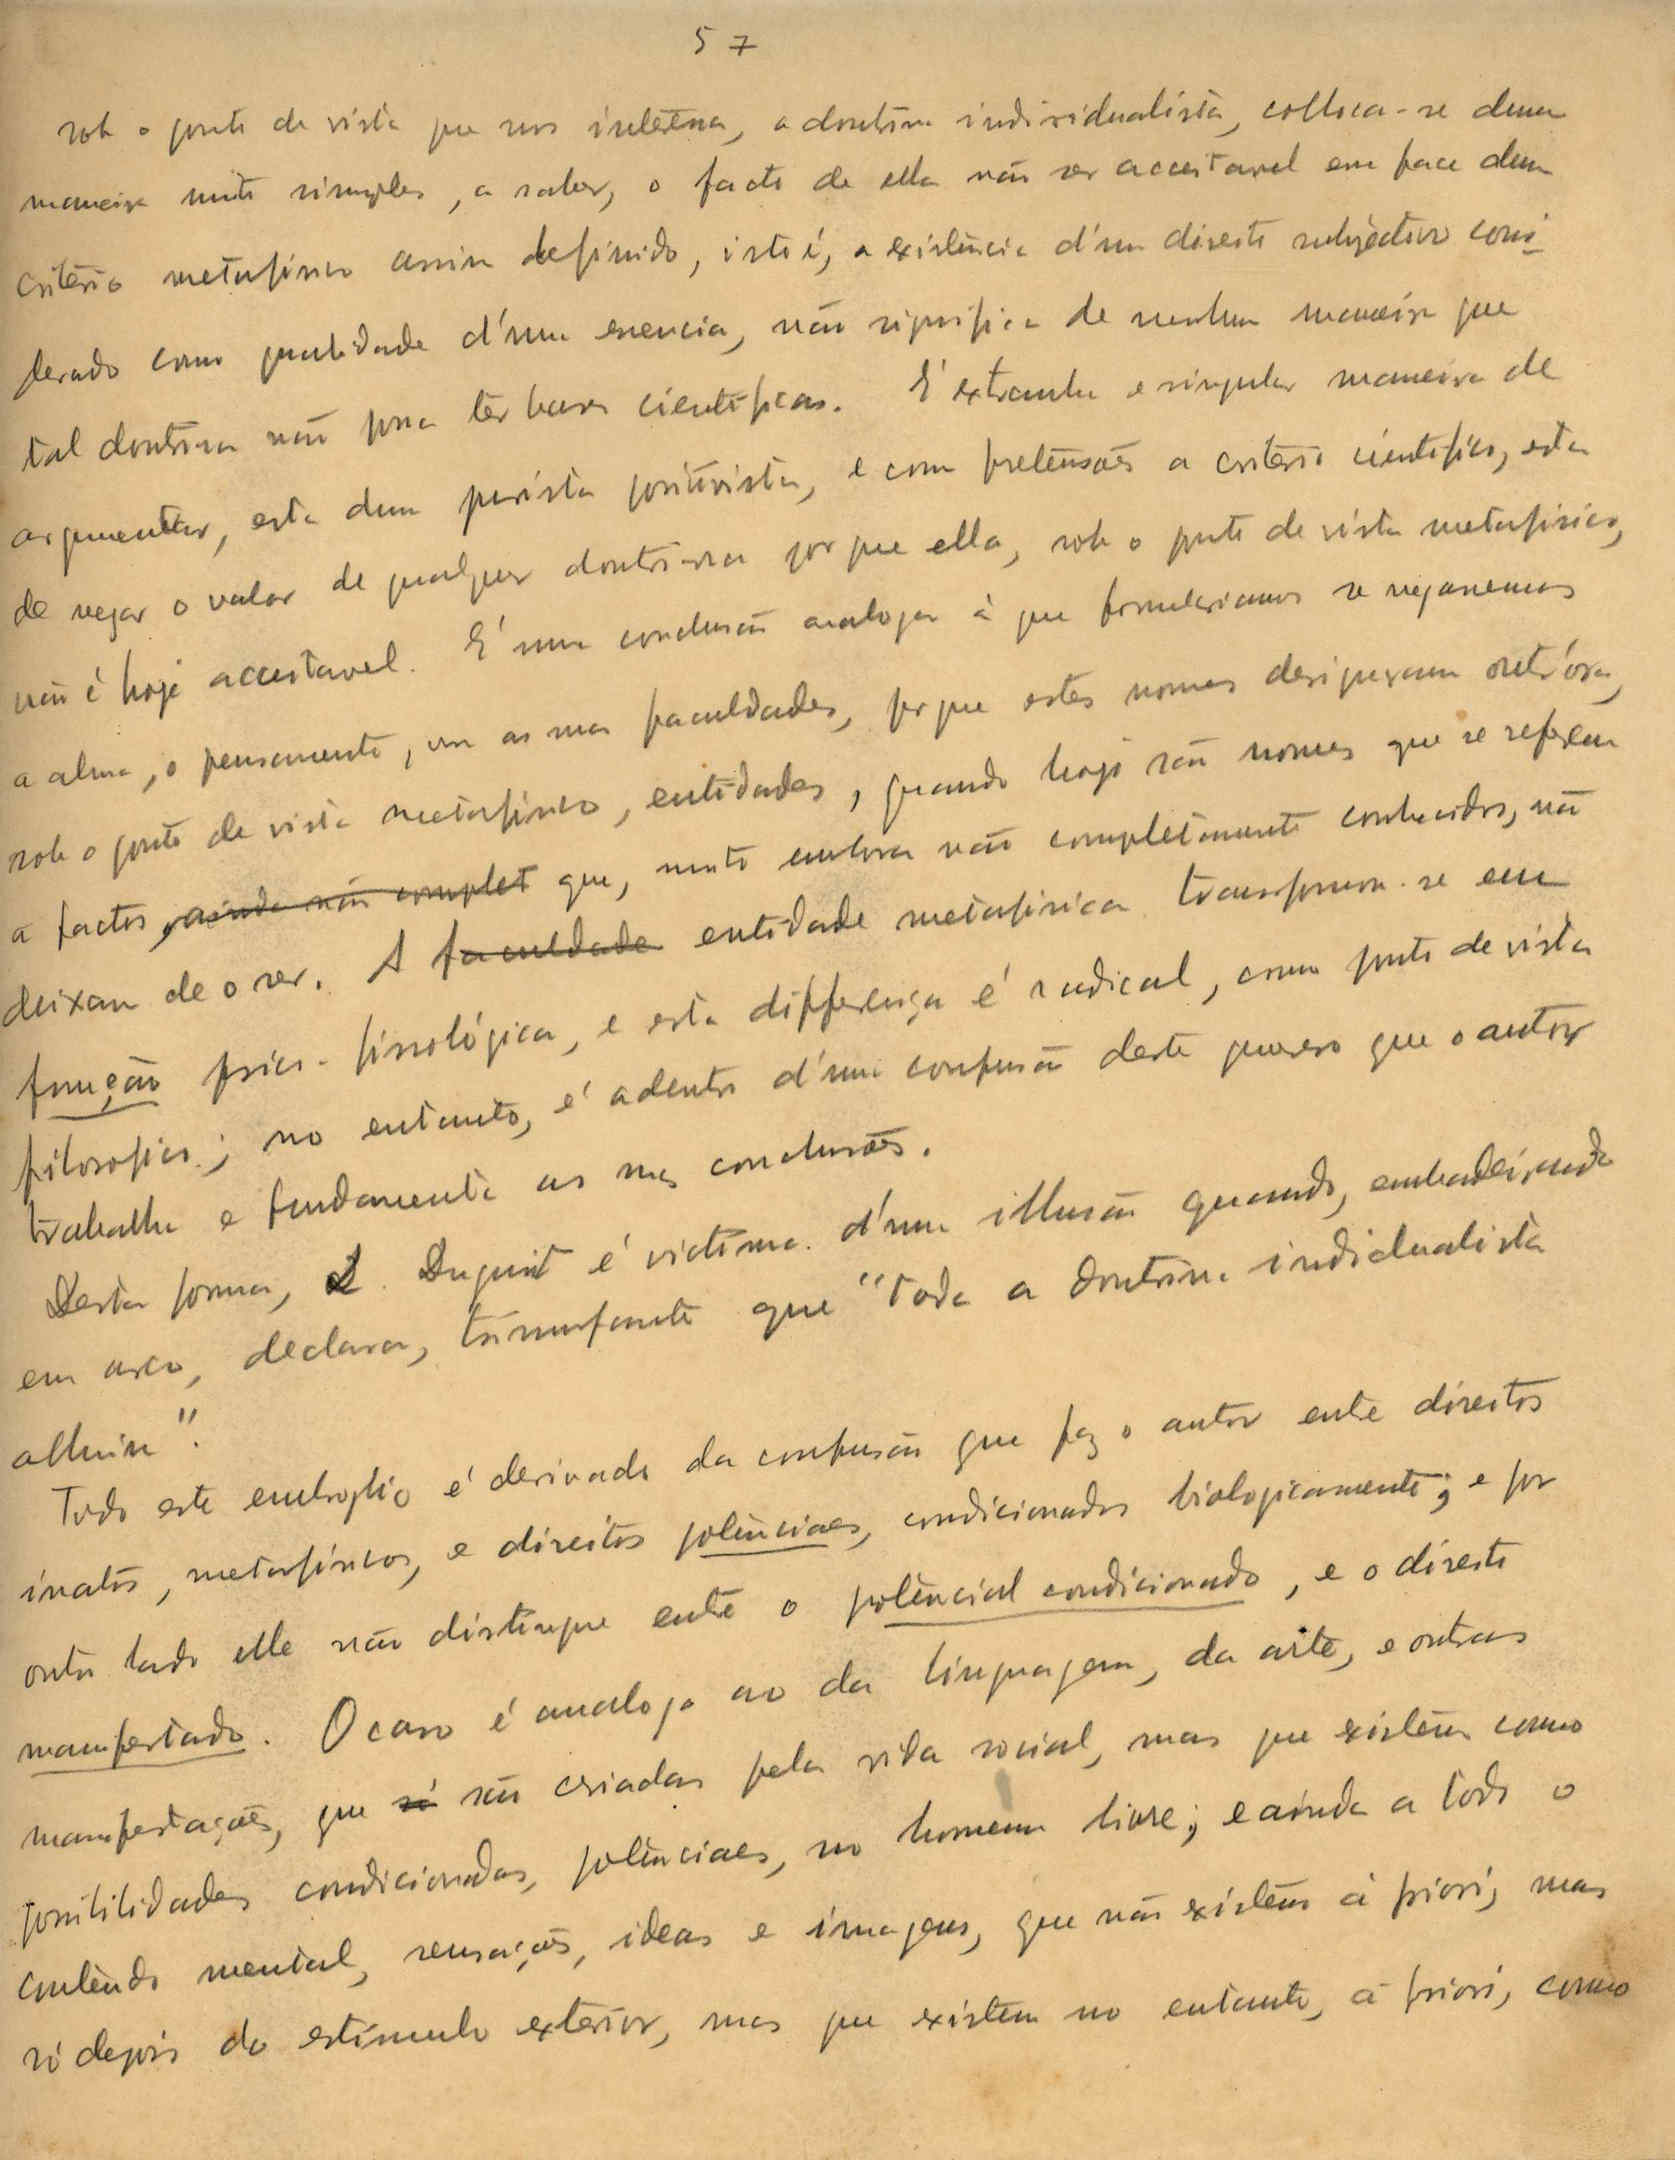 57
sob o ponto de vista que nos interessa, a doutrina individualista, colloca-se duma
maneira muito simples, a saber, o facto de ella não ser acceitavel em face dum
critério metafísico assim definido, isto é, a existência d'um direito subjectivo consi-
derado como qualidade d'uma essencia, não significa de nenhuma maneira que
tal doutrina não possa ter bases científicas. É extranha e singular maneira de
argumentar, esta dum jurista positivista, e com pretensões a critério científico, esta
de negar o valor de qualquer doutrina por que ella, sob o ponto de vista metafísico,
não é hoje acceitavel. É uma conclusão analoga á que formulariamos se negassemos
a alma, o pensamento, ou as suas faculdades, por que estes nomes designavam outr'óra,
sob o ponto de vista metafísico, entidades, quando hoje são nomes que se referem
a factos, ainda não complet que, muito embora não completamente conhecidos, não
deixam de o ser. A faculdade entidade metafísica transforma-se em
função psico-fisiológica, e esta differença é radical, como ponto de vista
filosofico; no entanto, é adentro d'uma confusão deste genero que o autor
trabalha e fundamenta as suas conclusões.
Desta forma, L. Duguit é victima d'uma illusão quando, embandeirando
em arco, declara, triumfante que "toda a doutrina individualista
alluiu".
Todo este embroglio é derivado da confusão que faz o autor entre direitos
inatos, metafísicos, e direitos potênciaes, condicionados biologicamente; e por
outro lado elle não distingue entre o potêncial condicionado, e o direito
manifestado. O caso é analogo ao da linguagem, da arte, e outras
manifestações, que só são criadas pela vida social, mas que existem como
possibilidades condicionadas, potênciaes, no homem livre; e ainda a todo o
contêudo mental, sensações, ideas e imagens, que não existem á priori, mas
só depois do estímulo exterior, mas que existem no entanto, á priori, como